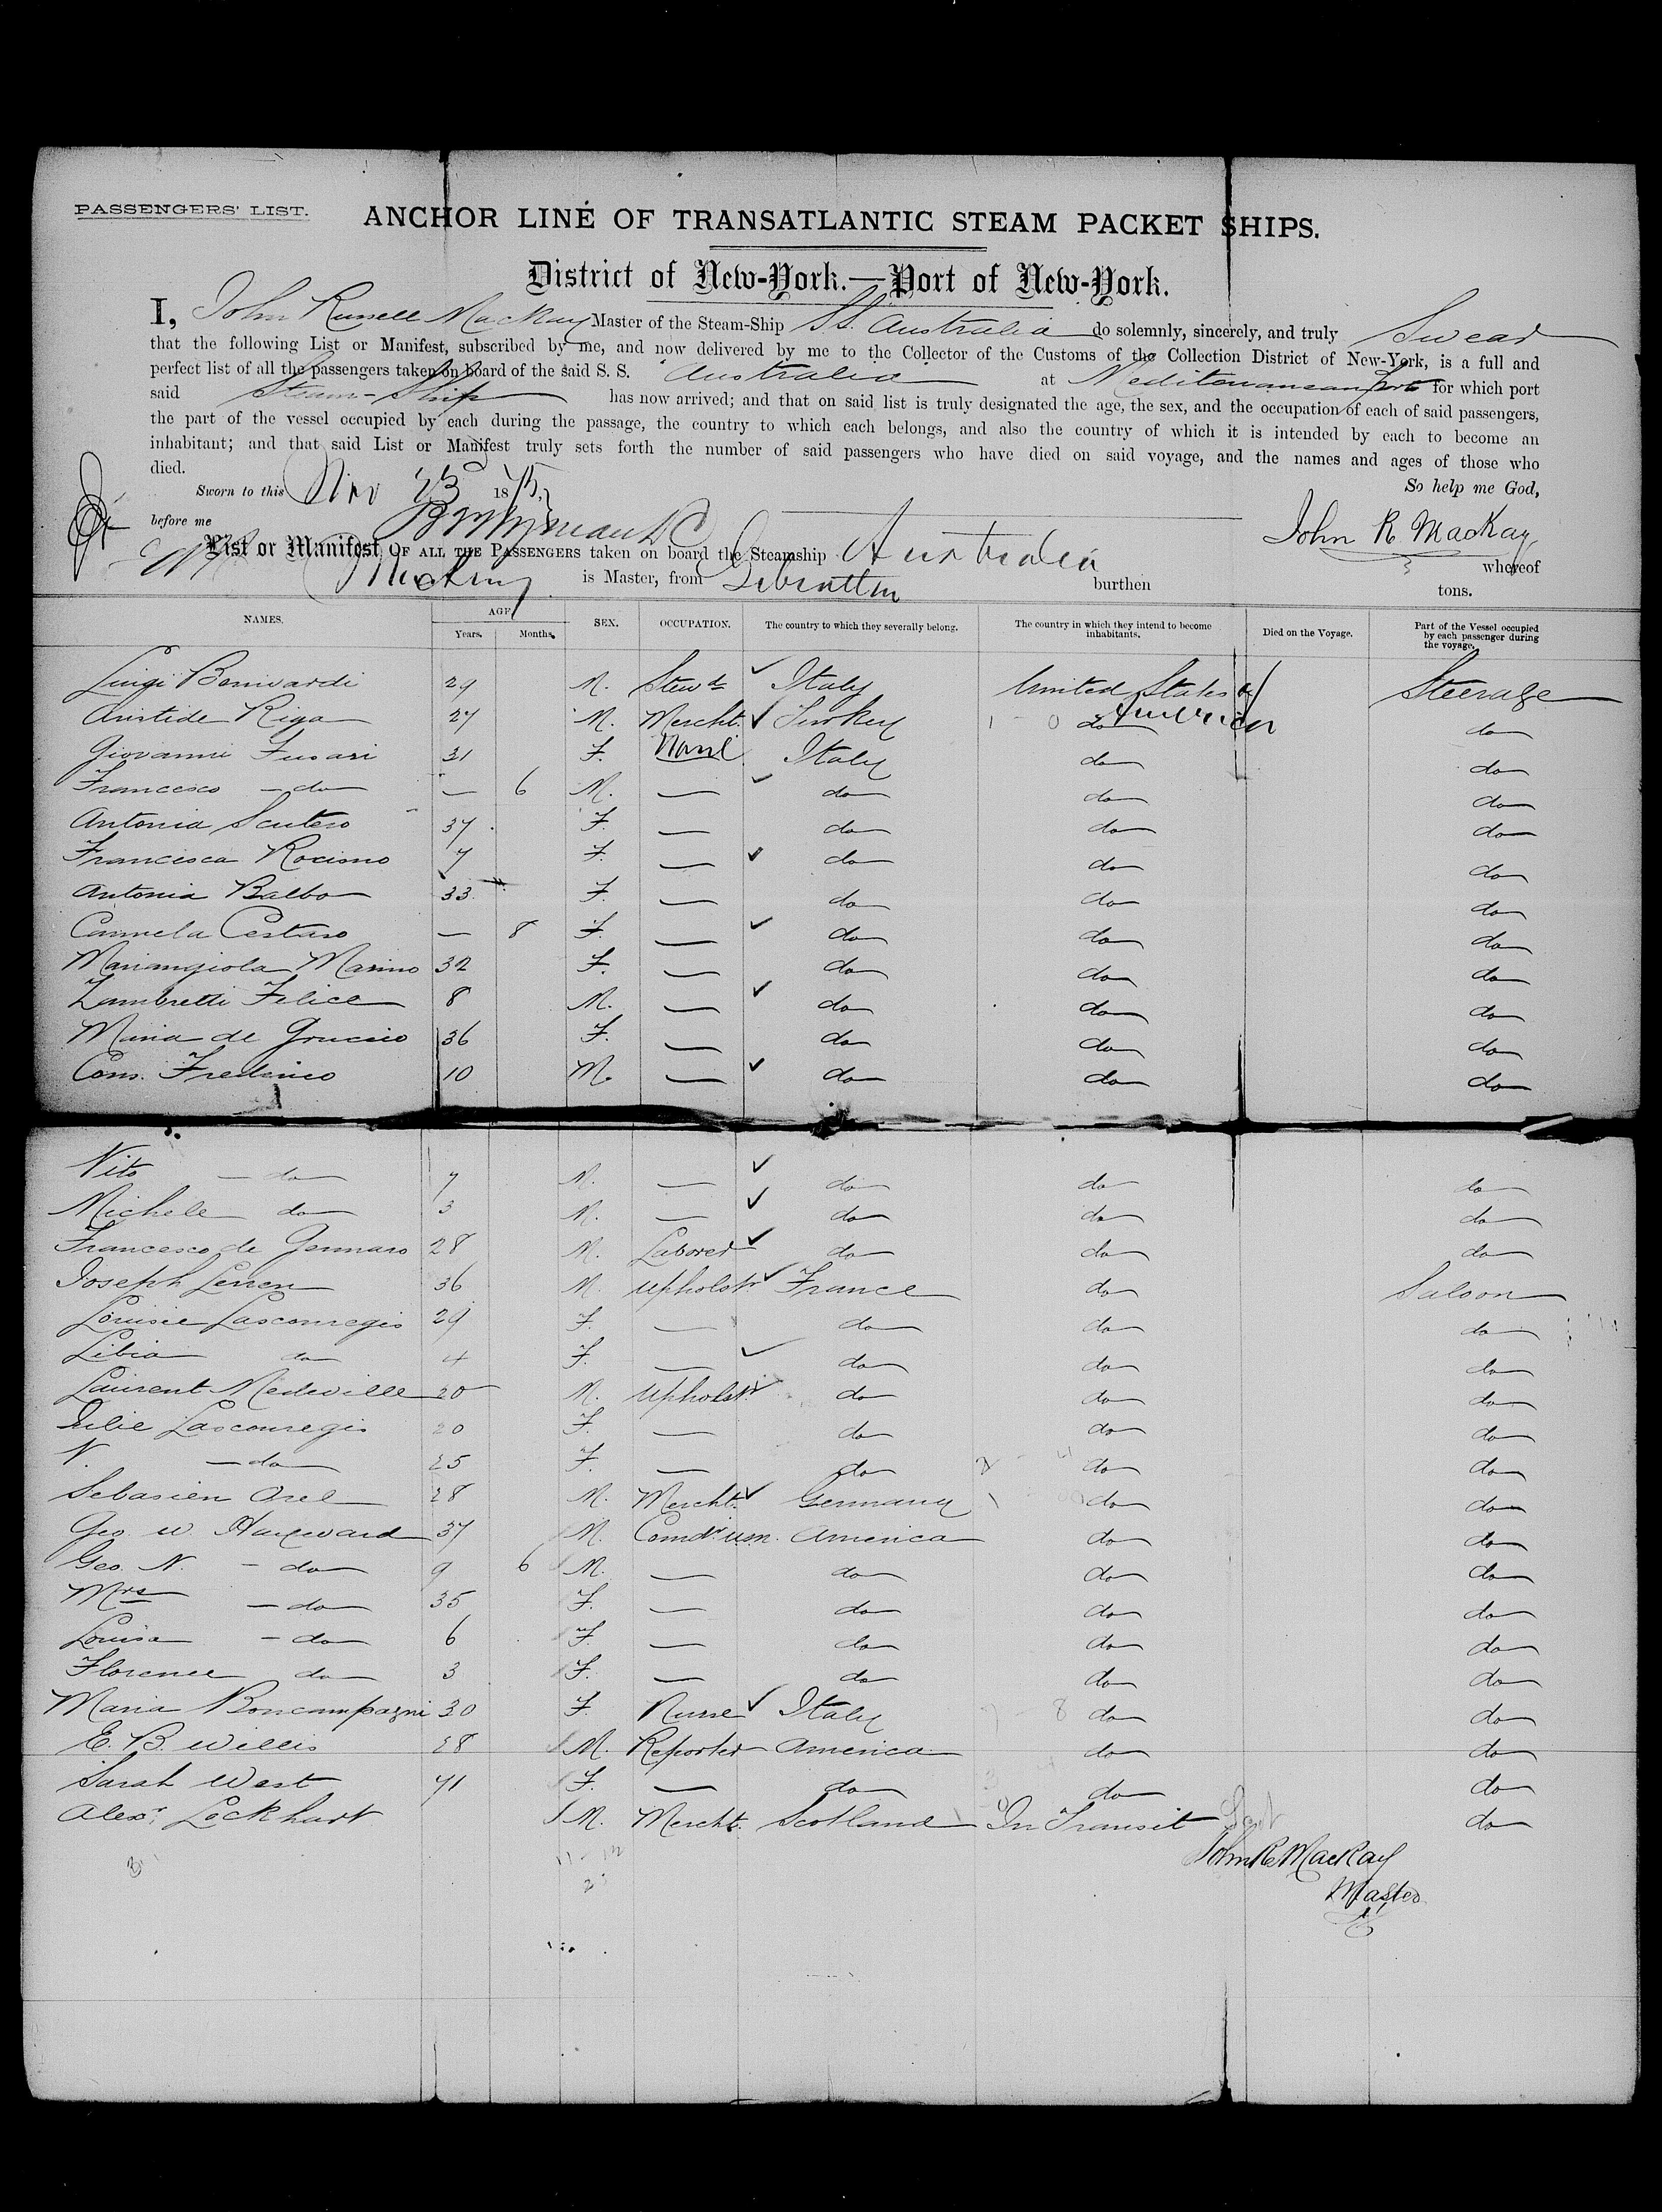 PASSENGERS' LIST.
ANCHOR LINE OF TRANSATLANTIC STEAM PACKET SHIPS.
District of New-York.—Port of New-York.
I, John Russell Mackay Master of the Steam-Ship S.S. Australia do solemnly, sincerely, and truly Swear
that the following List or Manifest, subscribed by me, and now delivered by me to the Collector of the Customs of the Collection District of New-York, is a full and
perfect list of all the passengers taken on board of the said S. S. Australia at Mediterranean Ports for which port
said Steam-Ship has now arrived; and that on said list is truly designated the age, the sex, and the occupation of each of said passengers,
the part of the vessel occupied by each during the passage, the country to which each belongs, and also the country of which it is intended by each to become an
inhabitant; and that said List or Manifest truly sets forth the number of said passengers who have died on said voyage, and the names and ages of those who
died. So help me God,
Sworn to this Nov 23 1875,
before me John R. MacKay
List or Manifest OF ALL THE PASSENGERS taken on board the Steamship Australia whereof
Mackay is Master, from Gibraltar burthen tons.
NAMES. AGE Years. Months. SEX. OCCUPATION. The country to which they severally belong. The country in which they intend to become inhabitants. Died on the Voyage. Part of the Vessel occupied by each passenger during the voyage.
Luigi 29 M. Stewd Italy United States of America Steerage
Aristide Riga 27 M. Mercht. Turkey do do
Giovanni Fusari 31 F. None Italy do do
Francesco — do 6 M. — do do do
Antonia Scutero 37 F. — do do do
Francisca 7 F. — do do do
Antonia Balbo 33 F. — do do do
Carmela Cestaro — 8 F. — do do do
Mariangiola Marino 32 F. — do do do
Zambretti Felice 8 M. — do do do
Maria de 36 F. — do do do
Cono. Frederico 10 M. — do do do
Vito — do 7 M. — do do do
Michele do 3 M. — do do do
Francesco de Gennaro 28 M. Laborer do do do
Joseph 36 M. Upholstr. France do Saloon
Louisie Lasconregis 29 F. — do do do
Libia do 4 F. — do do do
Laurent Medeville 20 M. Upholstr. do do do
Julie Lasconregis 20 F. — do do do
N. — do 25 F. — do do do
Sebasien Orel 28 M. Mercht. Germany do do
Geo. W. Hayward 37 M. Comdr. U.S.N. America do do
Geo. N. — do 9 6 M. — do do do
Mrs — do 35 F. — do do do
Louisa — do 6 F. — do do do
Florence do 3 F. — do do do
Maria Boncampagni 30 F. Nurse Italy do do
E. B. Willis 28 M. Reporter America do do
Sarah West 41 F. — do do do
Alexr. Lockhart M. Mercht. Scotland In Transit do
John R. MacKay
Master